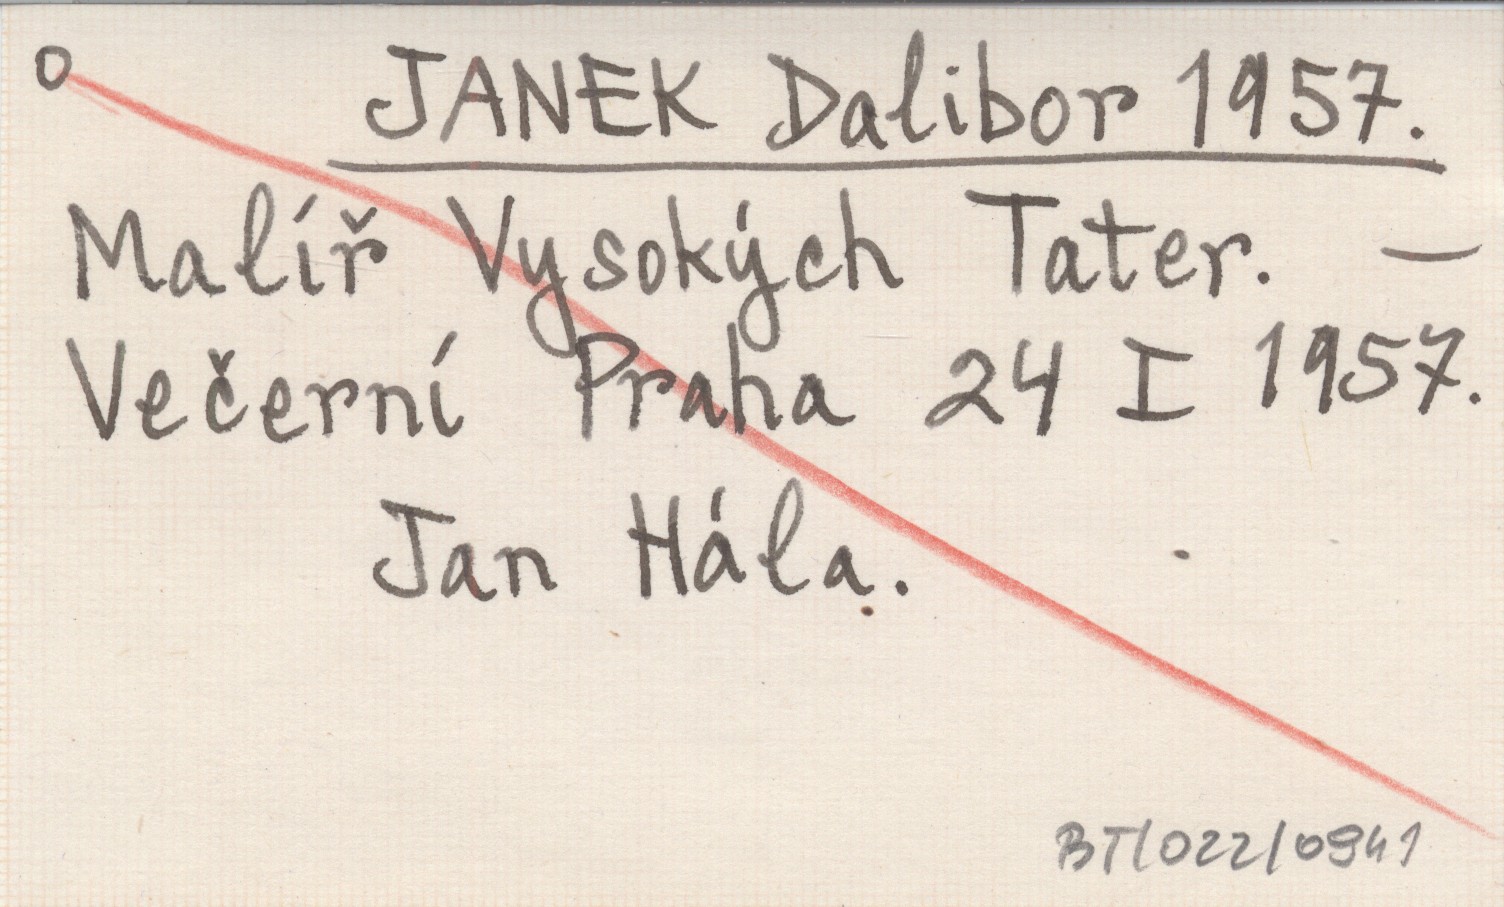 o JANEK Dalibor 1957.
Malíř Vysokých Tater. —
Večerní Praha 24 I 1957.
Jan Hála.
BT/022/0941